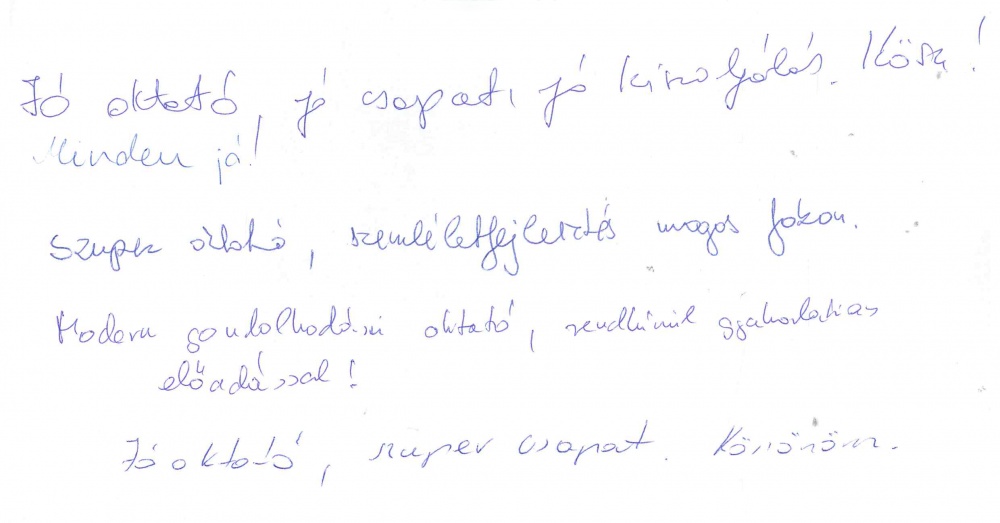 Jó oktató, jó csapat, jó kiszolgálás. Kösz!
Minden jó!
Szuper oktató, szemléletfejlesztés magas fokon.
Modern gondolkodású oktató, rendkívül gyakorlatias
előadással!
Jó oktató, szuper csapat. Köszönöm.